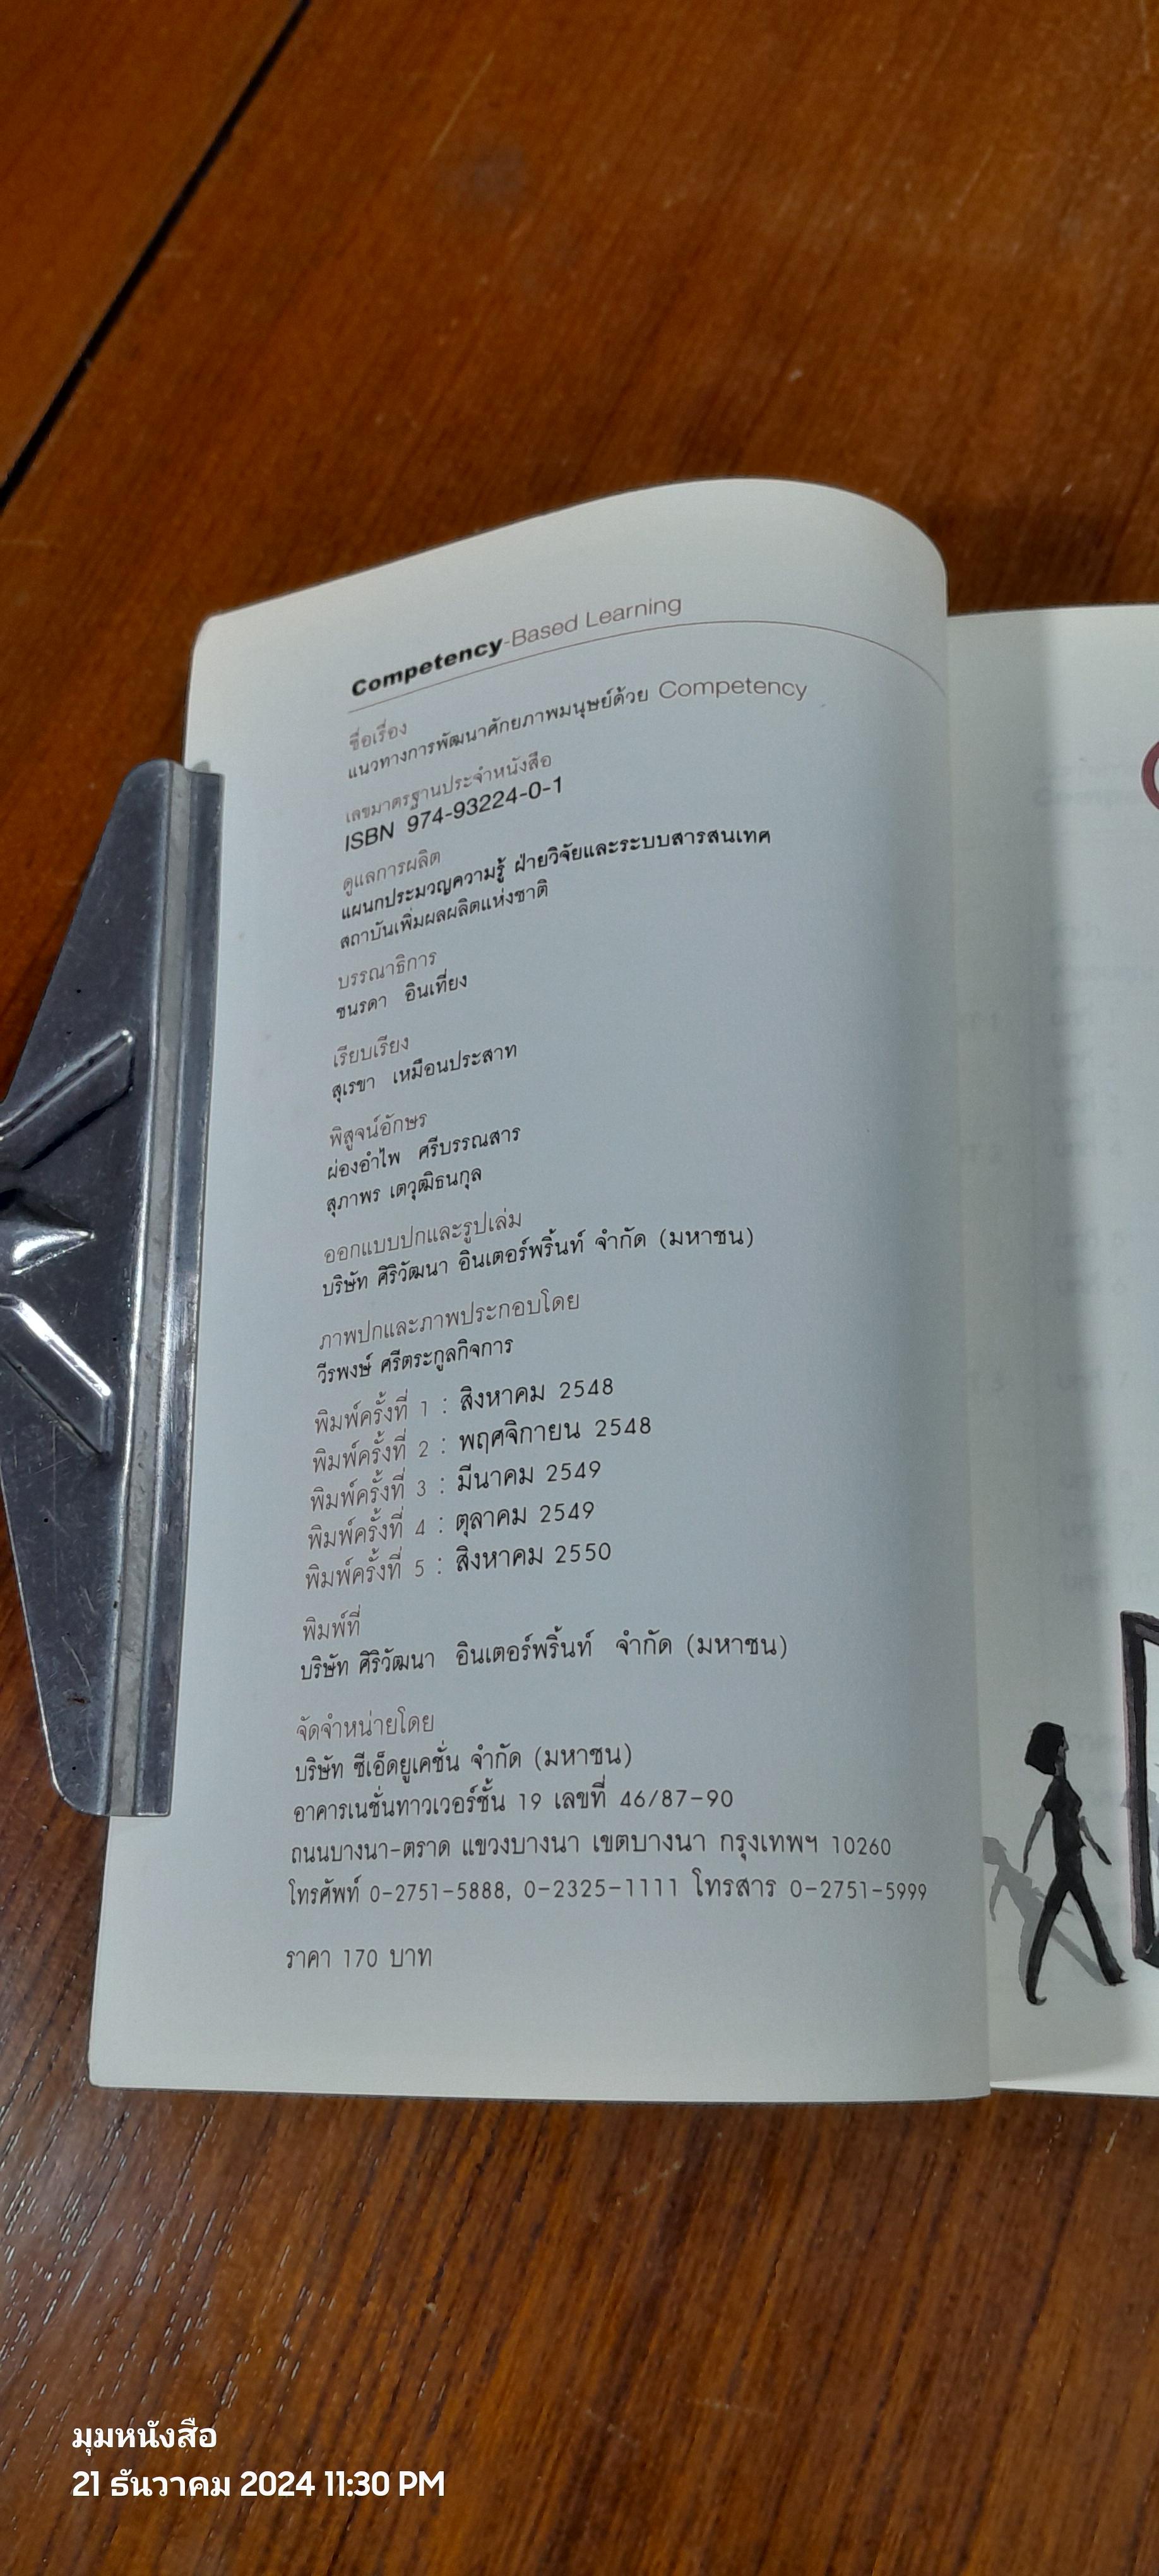 Competency-Based Learning
ชื่อเรื่อง
แนวทางการพัฒนาศักยภาพมนุษย์ด้วย Competency
เลขมาตรฐานประจำหนังสือ
ISBN 974-93224-0-1
ดูแลการผลิต
แผนกประมวญความรู้ ฝ่ายวิจัยและระบบสารสนเทศ
สถาบันเพิ่มผลผลิตแห่งชาติ
บรรณาธิการ
ชนรดา อินเที่ยง
เรียบเรียง
สุเรขา เหมือนประสาท
พิสูจน์อักษร
ผ่องอำไพ ศรีบรรณสาร
สุภาพร เตวุฒิธนกุล
ออกแบบปกและรูปเล่ม
บริษัท ศิริวัฒนา อินเตอร์พริ้นท์ จำกัด (มหาชน)
ภาพปกและภาพประกอบโดย
วีรพงษ์ ศรีตระกูลกิจการ
พิมพ์ครั้งที่ 1 : สิงหาคม 2548
พิมพ์ครั้งที่ 2 : พฤศจิกายน 2548
พิมพ์ครั้งที่ 3 : มีนาคม 2549
พิมพ์ครั้งที่ 4 : ตุลาคม 2549
พิมพ์ครั้งที่ 5 : สิงหาคม 2550
พิมพ์ที่
บริษัท ศิริวัฒนา อินเตอร์พริ้นท์ จำกัด (มหาชน)
จัดจำหน่ายโดย
บริษัท ซีเอ็ดยูเคชั่น จำกัด (มหาชน)
อาคารเนชั่นทาวเวอร์ชั้น 19 เลขที่ 46/87-90
ถนนบางนา-ตราด แขวงบางนา เขตบางนา กรุงเทพฯ 10260
โทรศัพท์ 0-2751-5888, 0-2325-1111 โทรสาร 0-2751-5999
ราคา 170 บาท
มุมหนังสือ
21 ธันวาคม 2024 11:30 PM